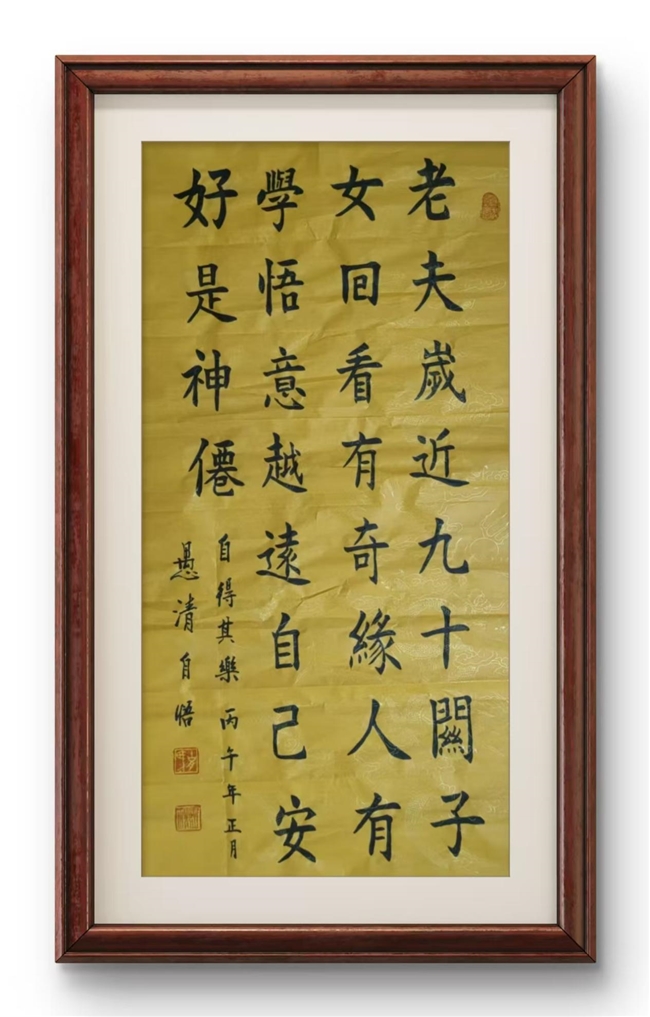 老夫歲近九十關子
女回看有奇緣人有
學悟意越遠自己安
好是神僊
自得其樂 丙午年正月
愚清自悟